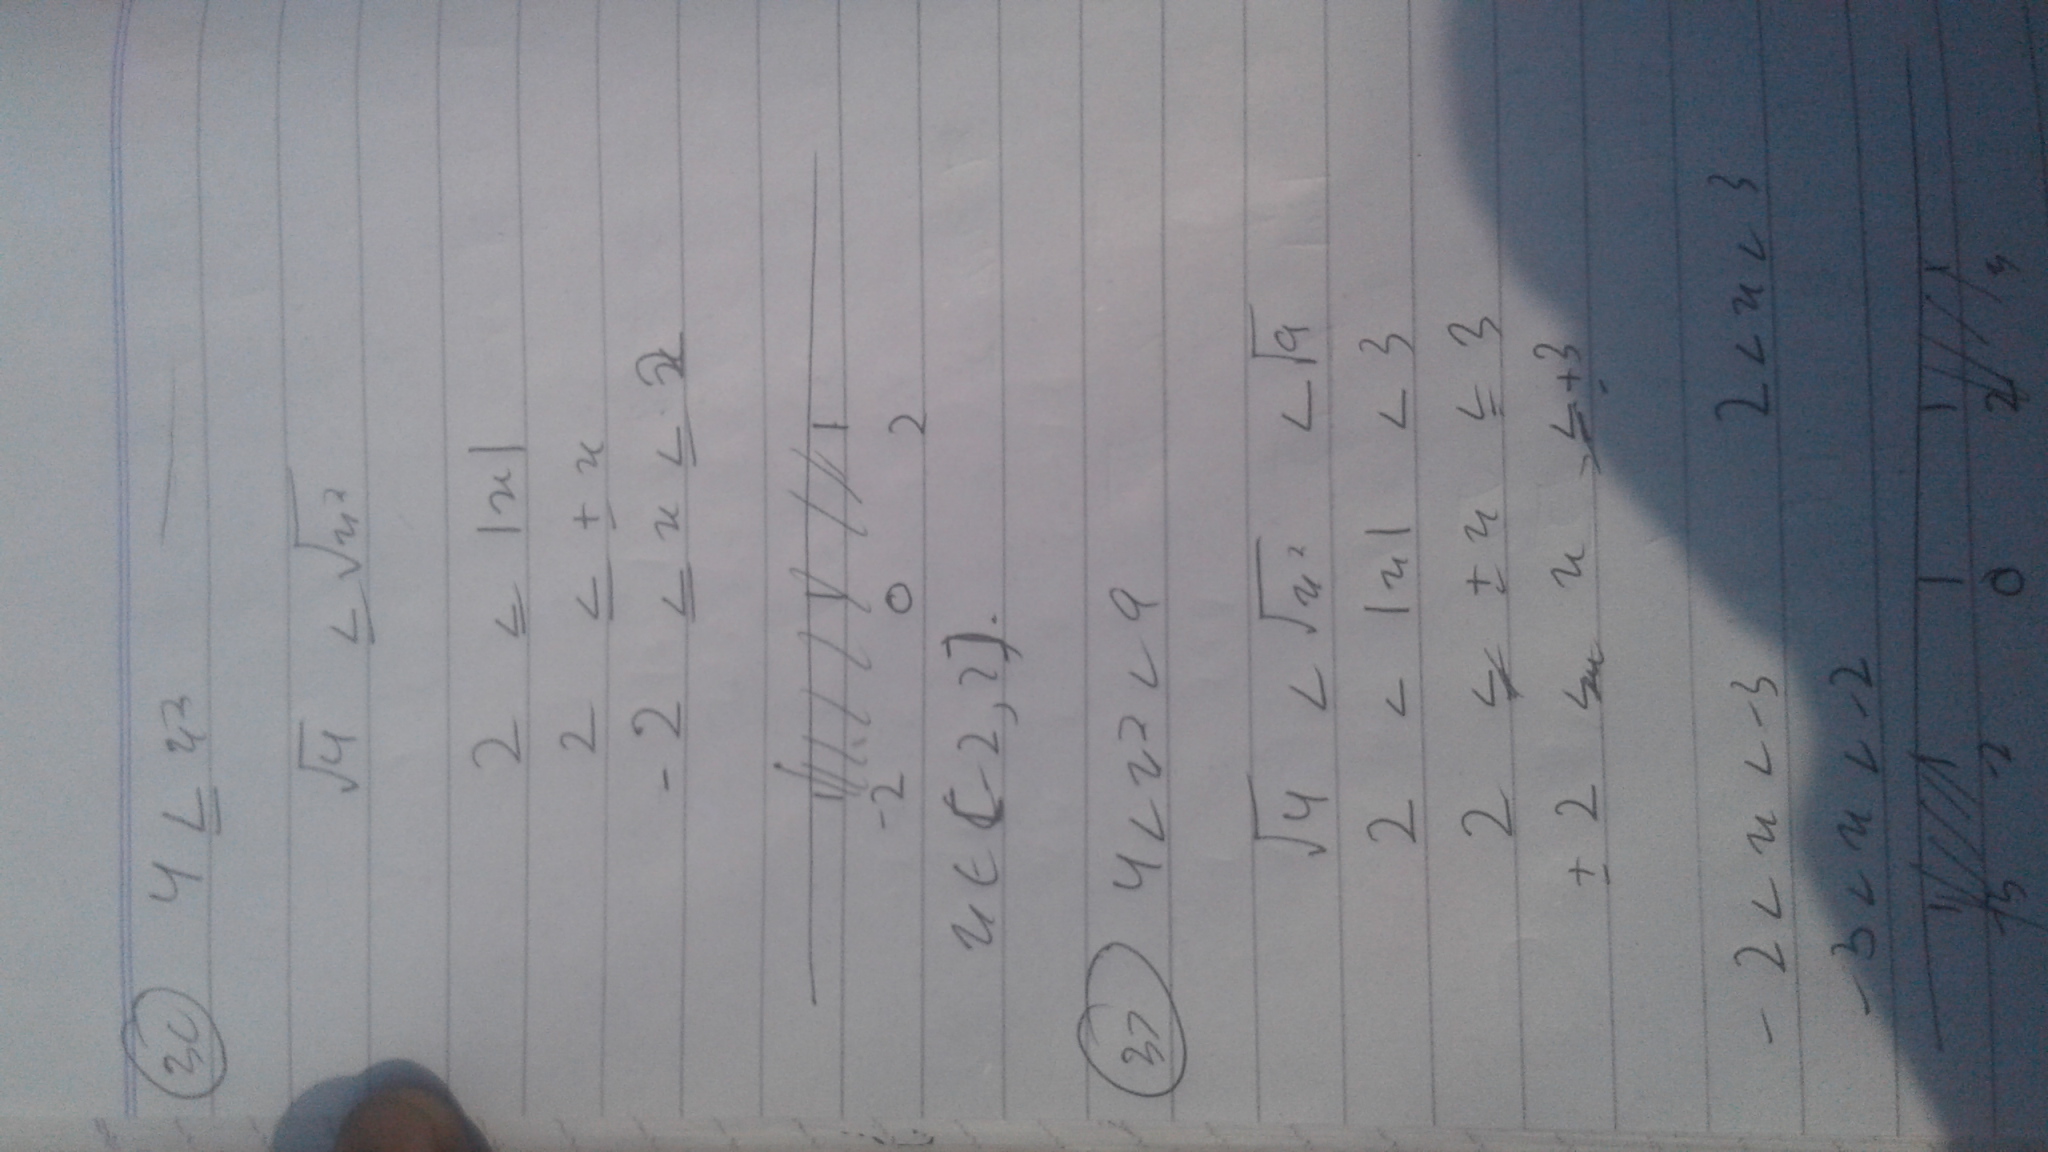 36 4 ≤ x2
√4 ≤ √x²
2 ≤ |x|
2 ≤ ± x
-2 ≤ x ≤ 2
-2 0 2
x ∈ [-2, 2].
37 4 < x2 < 9
√4 < √x² < √9
2 < |x| < 3
2 < ± x ≤ 3
± 2 < x ≤ ±3
-2 < x < -3 2 < x < 3
-3 < x < -2
-3 -2 0 2 3